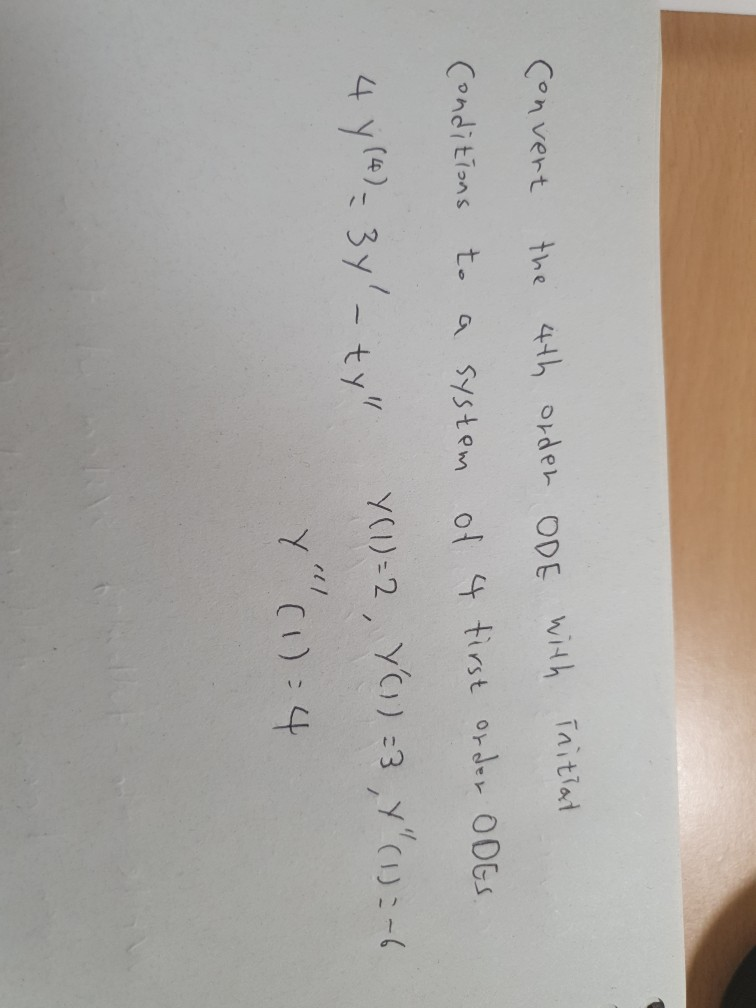 Convert the 4th order ODE with initial
conditions to a system of 4 first order ODEs.
4 y⁽⁴⁾ = 3y' - ty'' y(1)=2, y'(1)=3, y''(1)=-6
y'''(1)=4